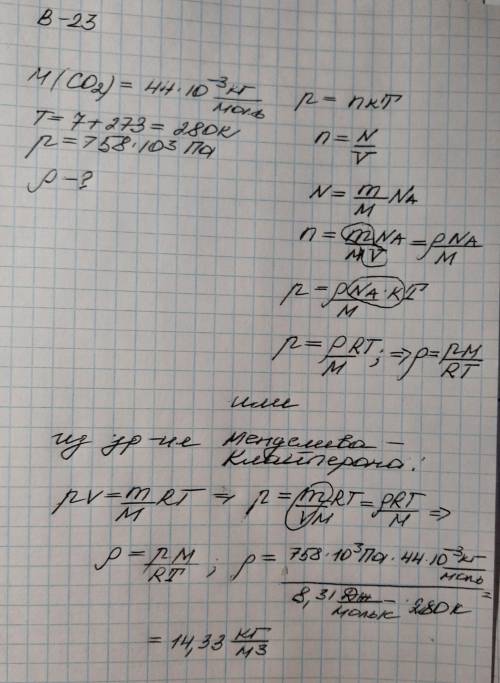 В-23
M(CO₂) = 44·10⁻³ кг/моль
T = 7 + 273 = 280К
p = 758·10³ Па
ρ - ?
p = nкT
n = N/V
N = m/M NA
n = mNA/MV = ρNA/M
p = ρNA·кT/M
p = ρRT/M; => ρ = pM/RT
или
из ур-ие Менделеева -
Клайперона:
pV = m/M RT => p = mRT/VM = ρRT/M =>
ρ = pM/RT; ρ = 758·10³Па·44·10⁻³ кг/моль / 8,31 Дж/моль·К · 280К =
= 14,33 кг/м³